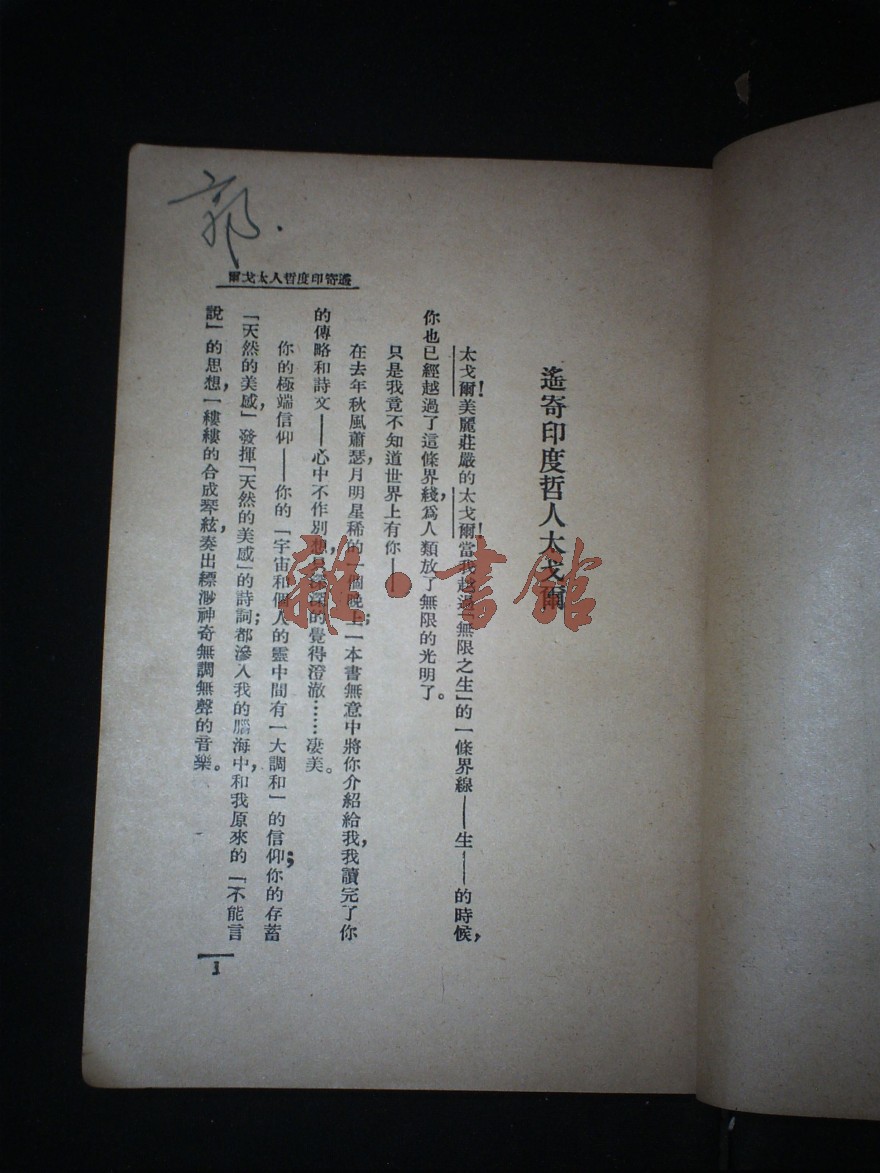 郭.
遙寄印度哲人太戈爾
遙寄印度哲人太戈爾
太戈爾!美麗莊嚴的太戈爾!當我越過「無限之生」的一條界線——生——的時候,
你也已經越過了這條界綫,爲人類放了無限的光明了。
只是我竟不知道世界上有你——
在去年秋風蕭瑟,月明星稀的一個晚上;一本書無意中將你介紹給我,我讀完了你
的傳略和詩文——心中不作別想,只深深的覺得澄澈……凄美。
你的極端信仰——你的「宇宙和個人的靈中間有一大調和」的信仰;你的存蓄
「天然的美感」,發揮「天然的美感」的詩詞;都滲入我的腦海中,和我原來的「不能言
說」的思想,一縷縷的合成琴絃,奏出縹渺神奇無調無聲的音樂。
1
雜·書館